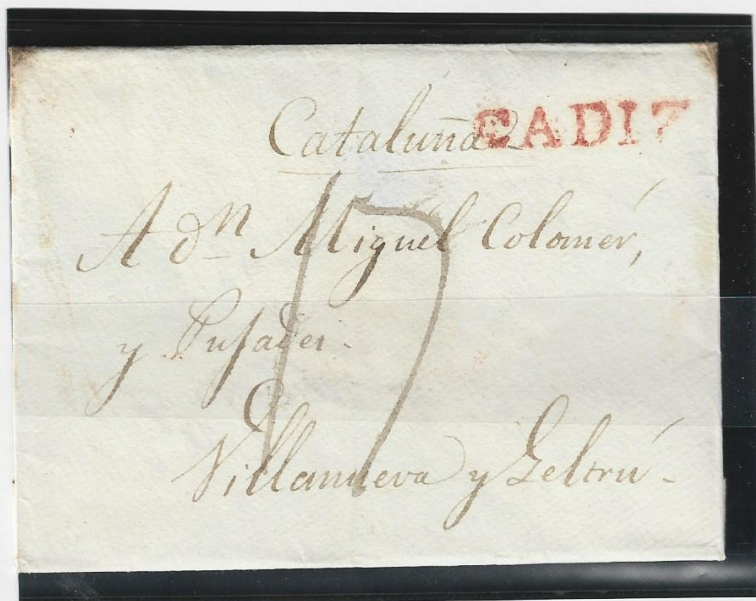 Cataluña CADIZ
A dn Miguel Colomér,
y Pusades.
Villanueva y Geltrú.
17